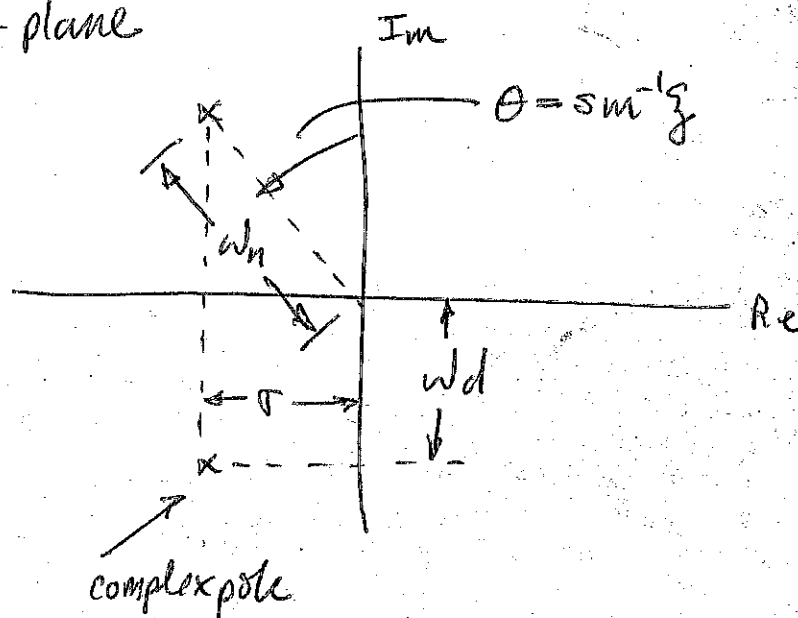 - plane
Im
θ = sin⁻¹ξ
ωn
Re
ωd
σ
complex pole